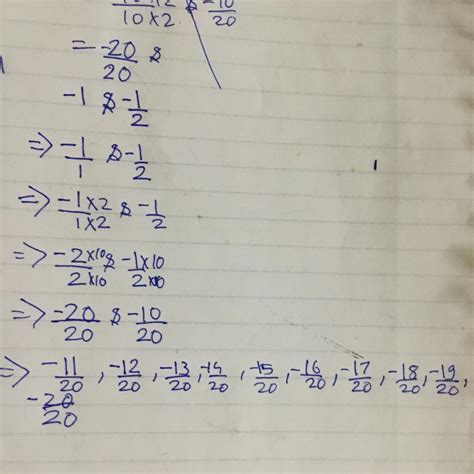 10×2 & -10/20
= -20/20 &
-1 & -1/2
=> -1/1 & -1/2
=> -1×2/1×2 & -1/2
=> -2×10/2×10 & -1×10/2×10
=> -20/20 & -10/20
=> -11/20, -12/20, -13/20, -14/20, -15/20, -16/20, -17/20, -18/20, -19/20,
-20/20